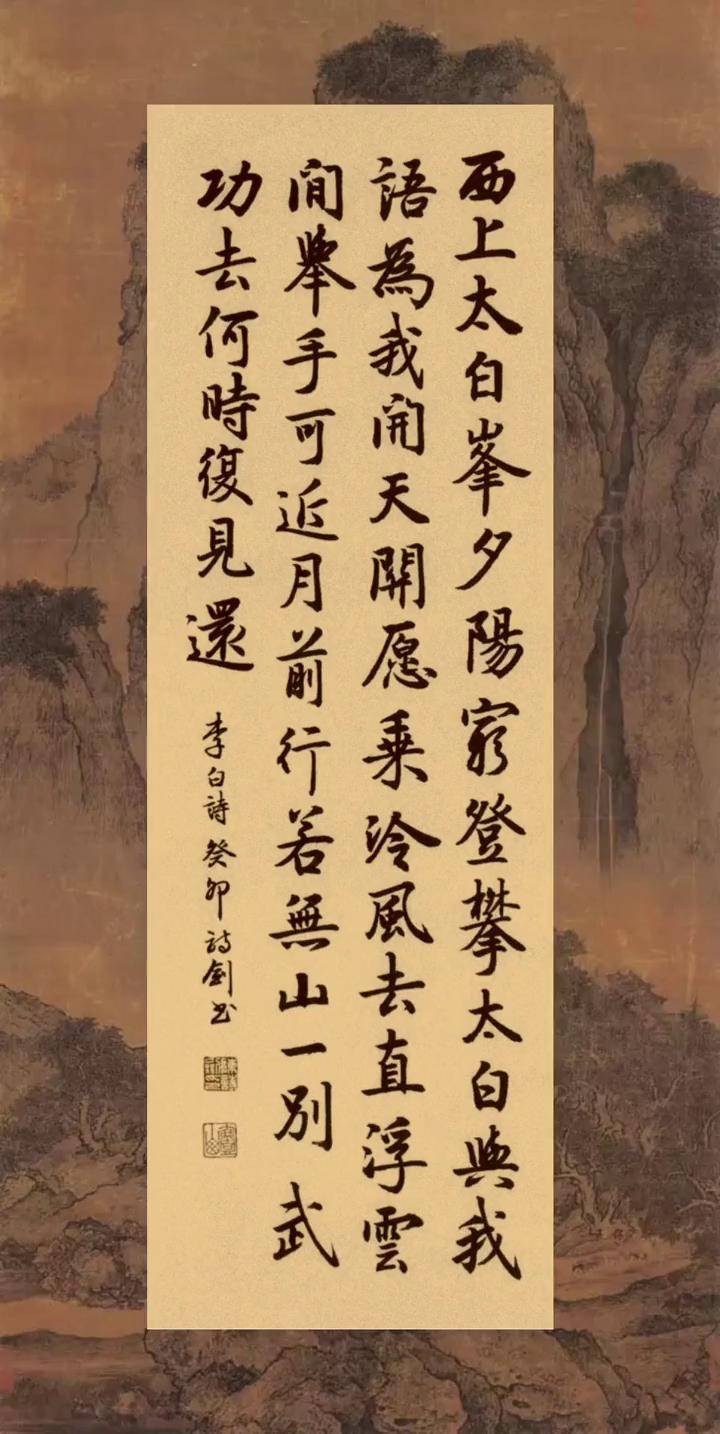 西上太白峯夕陽窮登攀太白與我
語為我開天關愿乘泠風去直浮雲
間舉手可近月前行若無山一別武
功去何時復見還
李白詩癸卯詩劍书